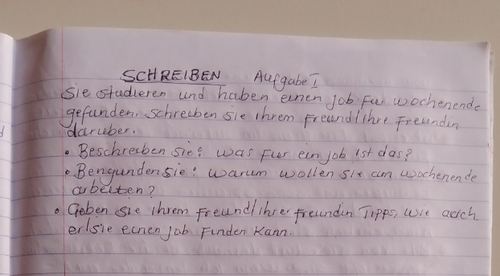 SCHREIBEN Aufgabe I
Sie studieren und haben einen Job für wochenende
gefunden. Schreiben Sie Ihrem Freund/Ihre Freundin
darüber.
• Beschreiben Sie: was für ein Job ist das?
• Bengunden Sie: warum wollen Sie am wochenende
arbeiten?
• Geben Sie Ihrem Freund/Ihrer Freundin Tipps, wie auch
er/sie einen Job finden kann.